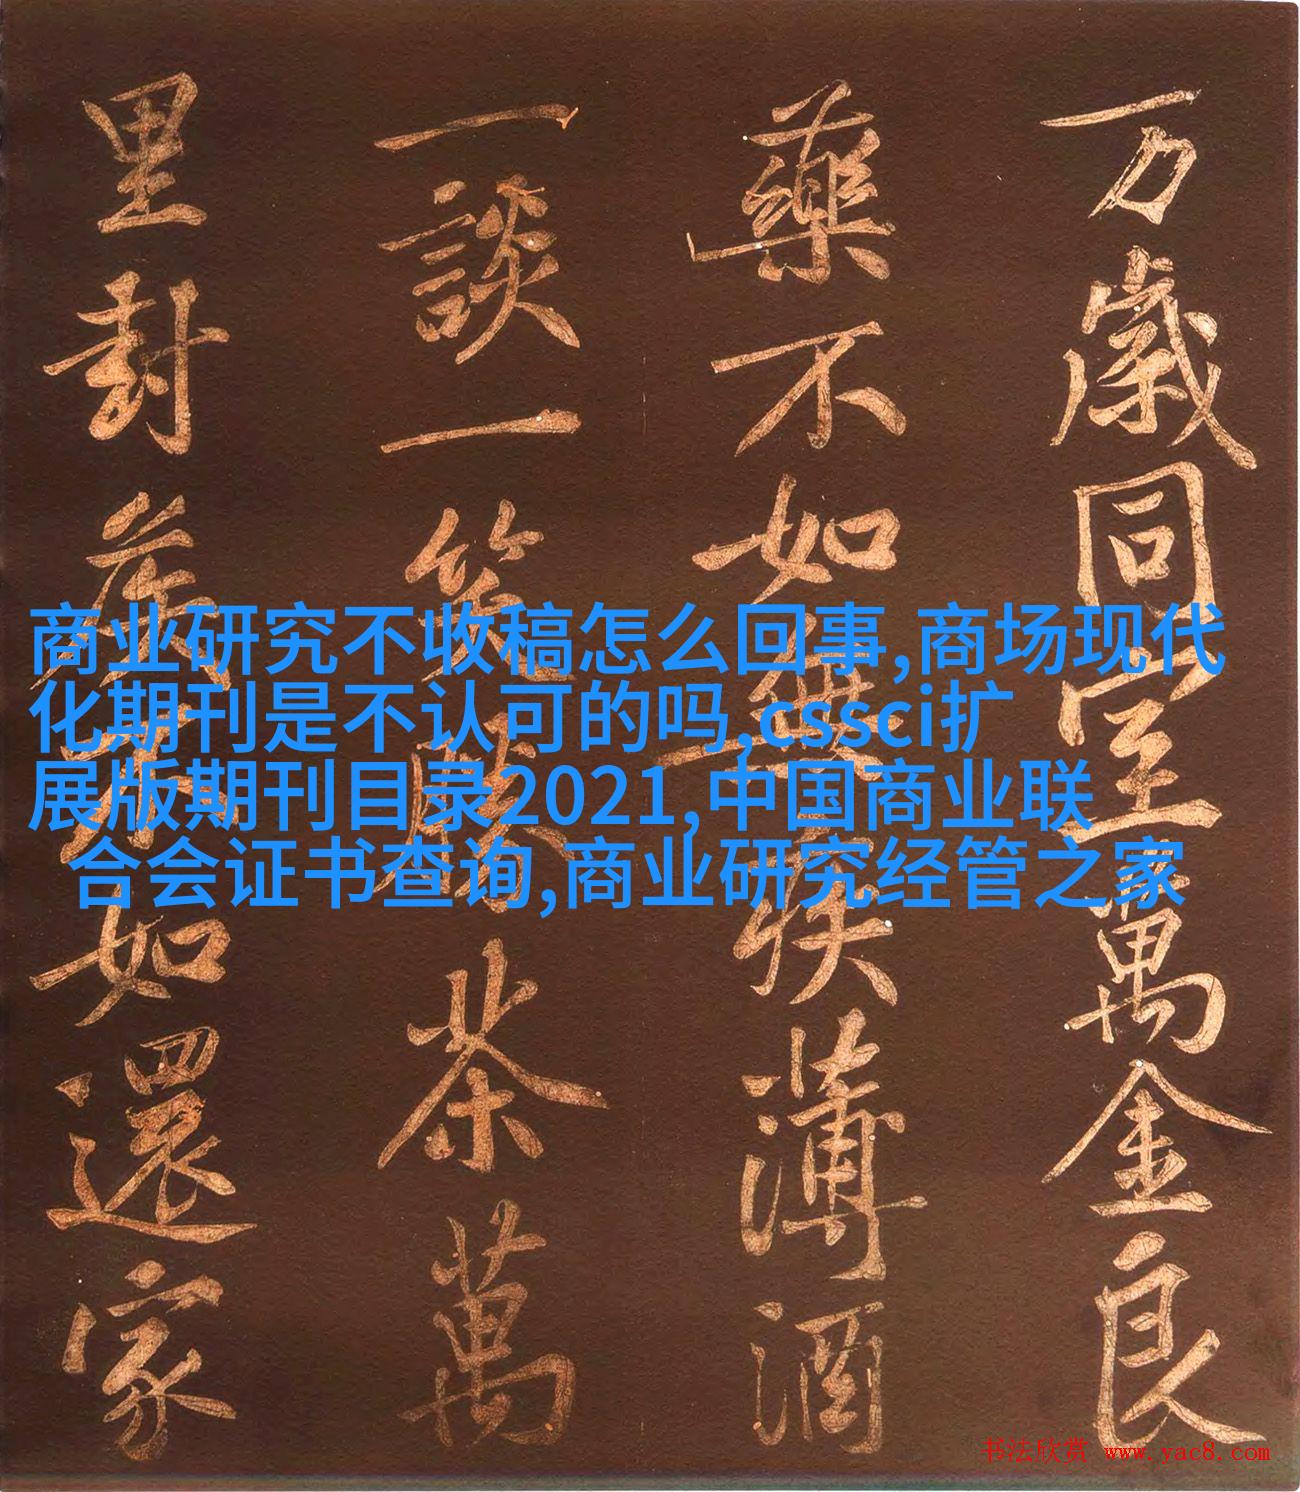 万歲同室萬金良
藥不如無疾薄酒
一談一笑勝茶萬
里封侯不如還家
商业研究不收稿怎么回事,商场现代
化期刊是不认可的吗,cssci扩
展版期刊目录2021,中国商业联
合会证书查询,商业研究经管之家
书法欣赏 www.yac8.com